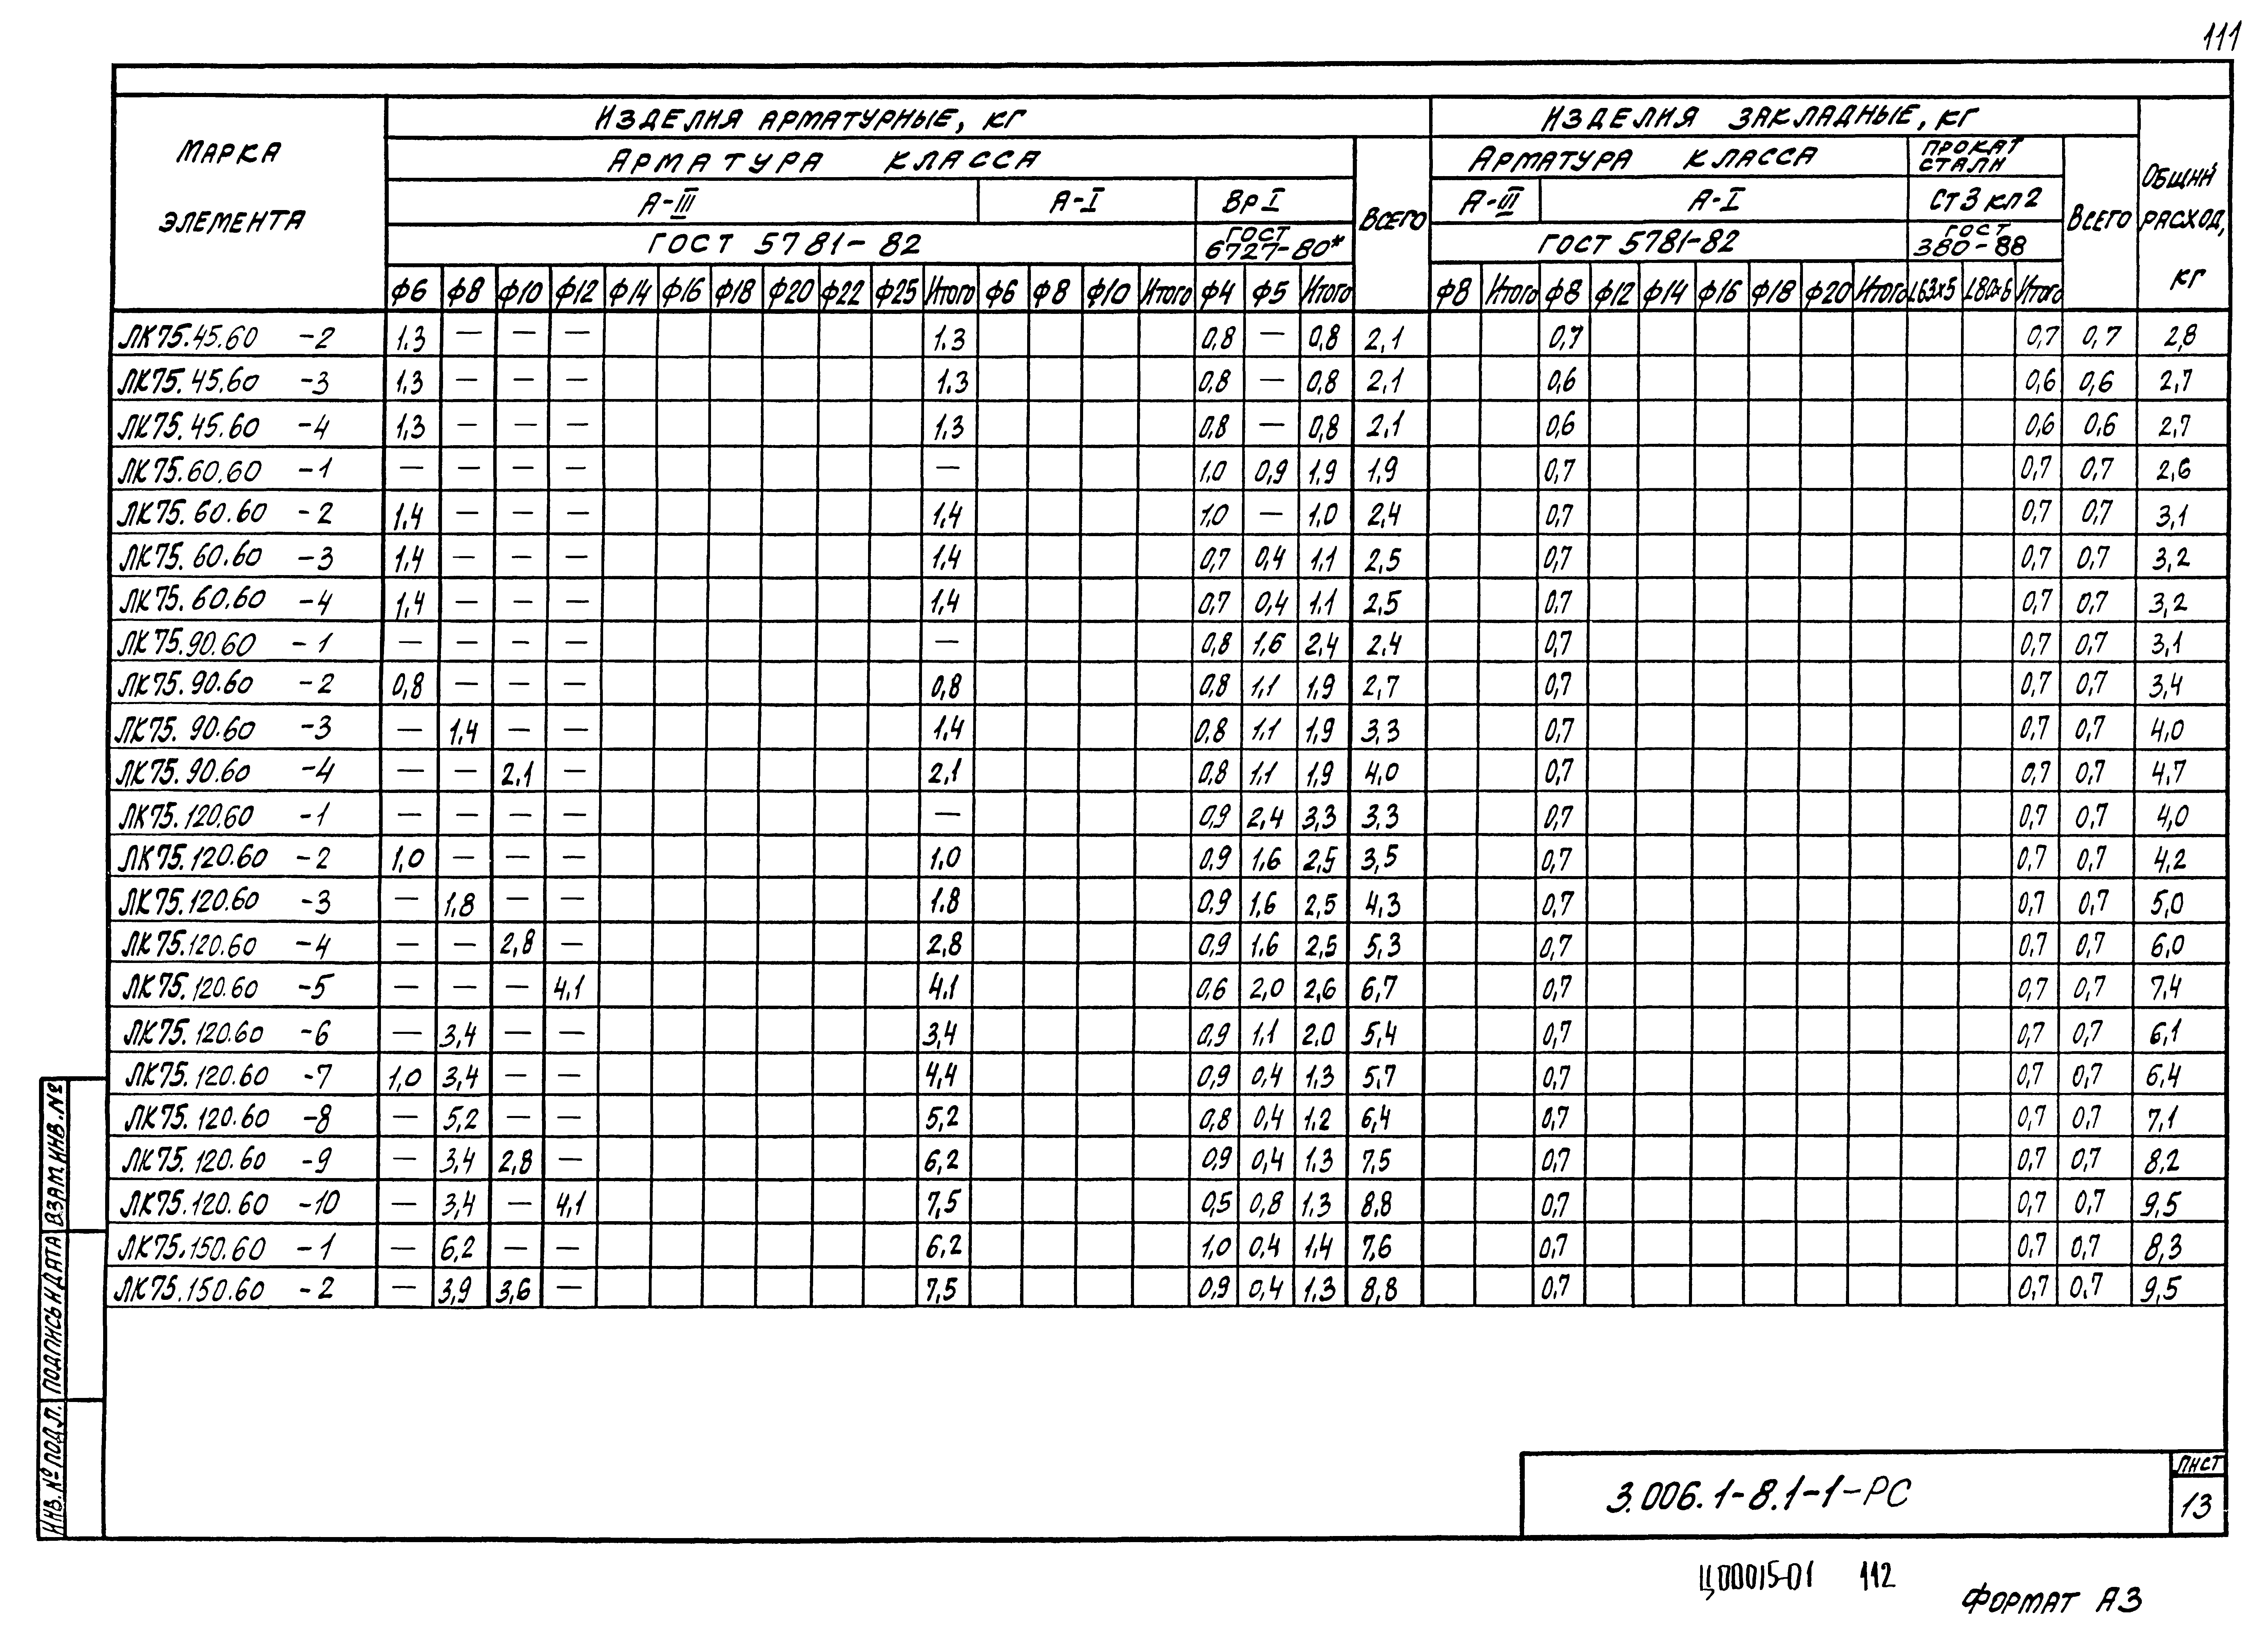 111
ИЗДЕЛИЯ АРМАТУРНЫЕ, КГ ИЗДЕЛИЯ ЗАКЛАДНЫЕ, КГ
МАРКА ЭЛЕМЕНТА АРМАТУРА КЛАССА ВСЕГО АРМАТУРА КЛАССА ПРОКАТ СТАЛИ ВСЕГО ОБЩИЙ РАСХОД, КГ
А-III А-I ВрI А-III А-I Ст3кп2
ГОСТ 5781-82 ГОСТ 6727-80* ГОСТ 5781-82 ГОСТ 380-88
ф6 ф8 ф10 ф12 ф14 ф16 ф18 ф20 ф22 ф25 Итого ф6 ф8 ф10 Итого ф4 ф5 Итого ф8 Итого ф8 ф12 ф14 ф16 ф18 ф20 Итого L63х5 L80х6 Итого
ЛК75.45.60 -2 1.3 — — — 1.3 0,8 — 0,8 2,1 0,7 0,7 0,7 2,8
ЛК75.45.60 -3 1.3 — — — 1.3 0,8 — 0,8 2,1 0,6 0,6 0,6 2,7
ЛК75.45.60 -4 1,3 — — — 1.3 0,8 — 0,8 2,1 0,6 0,6 0,6 2,7
ЛК75.60.60 -1 — — — — — 1,0 0,9 1,9 1,9 0,7 0,7 0,7 2,6
ЛК75.60.60 -2 1,4 — — — 1,4 1,0 — 1,0 2,4 0,7 0,7 0,7 3,1
ЛК75.60.60 -3 1,4 — — — 1,4 0,7 0,4 1,1 2,5 0,7 0,7 0,7 3,2
ЛК75.60.60 -4 1,4 — — — 1,4 0,7 0,4 1,1 2,5 0,7 0,7 0,7 3,2
ЛК75.90.60 -1 — — — — — 0,8 1,6 2,4 2,4 0,7 0,7 0,7 3,1
ЛК75.90.60 -2 0,8 — — — 0,8 0,8 1,1 1,9 2,7 0,7 0,7 0,7 3,4
ЛК75.90.60 -3 — 1,4 — — 1,4 0,8 1,1 1,9 3,3 0,7 0,7 0,7 4,0
ЛК75.90.60 -4 — — 2,1 — 2,1 0,8 1,1 1,9 4,0 0,7 0,7 0,7 4,7
ЛК75.120.60 -1 — — — — — 0,9 2,4 3,3 3,3 0,7 0,7 0,7 4,0
ЛК75.120.60 -2 1,0 — — — 1,0 0,9 1,6 2,5 3,5 0,7 0,7 0,7 4,2
ЛК75.120.60 -3 — 1,8 — — 1.8 0,9 1,6 2,5 4,3 0,7 0,7 0,7 5,0
ЛК75.120.60 -4 — — 2,8 — 2,8 0,9 1,6 2,5 5,3 0,7 0,7 0,7 6,0
ЛК75.120.60 -5 — — — 4,1 4,1 0,6 2,0 2,6 6,7 0,7 0,7 0,7 7,4
ЛК75.120.60 -6 — 3,4 — — 3,4 0,9 1,1 2.0 5,4 0,7 0,7 0,7 6,1
ЛК75.120.60 -7 1,0 3,4 — — 4,4 0,9 0,4 1,3 5,7 0,7 0,7 0,7 6,4
ЛК75.120.60 -8 — 5,2 — — 5,2 0,8 0,4 1.2 6,4 0,7 0,7 0,7 7,1
ЛК75.120.60 -9 — 3,4 2,8 — 6,2 0,9 0,4 1.3 7,5 0,7 0,7 0,7 8,2
ЛК75.120.60 -10 — 3,4 — 4,1 7,5 0,5 0,8 1.3 8.8 0,7 0,7 0,7 9,5
ЛК75.150.60 -1 — 6,2 — — 6,2 1,0 0,4 1,4 7,6 0,7 0,7 0,7 8,3
ЛК75.150.60 -2 — 3,9 3,6 — 7,5 0,9 0,4 1.3 8,8 0,7 0,7 0,7 9,5
ИНВ. № ПОДЛ. ПОДПИСЬ И ДАТА ВЗАМ. ИНВ. №
3.006.1-8.1-1-РС
ЛИСТ
13
Ц00015-01 112
ФОРМАТ А3